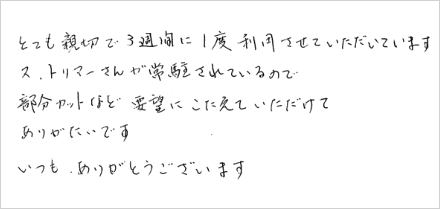 とても親切で3週間に1度利用させていただいています
又、トリマーさんが常駐されているので
部分カットなど要望にこたえていただけて
ありがたいです
いつも、ありがとうございます